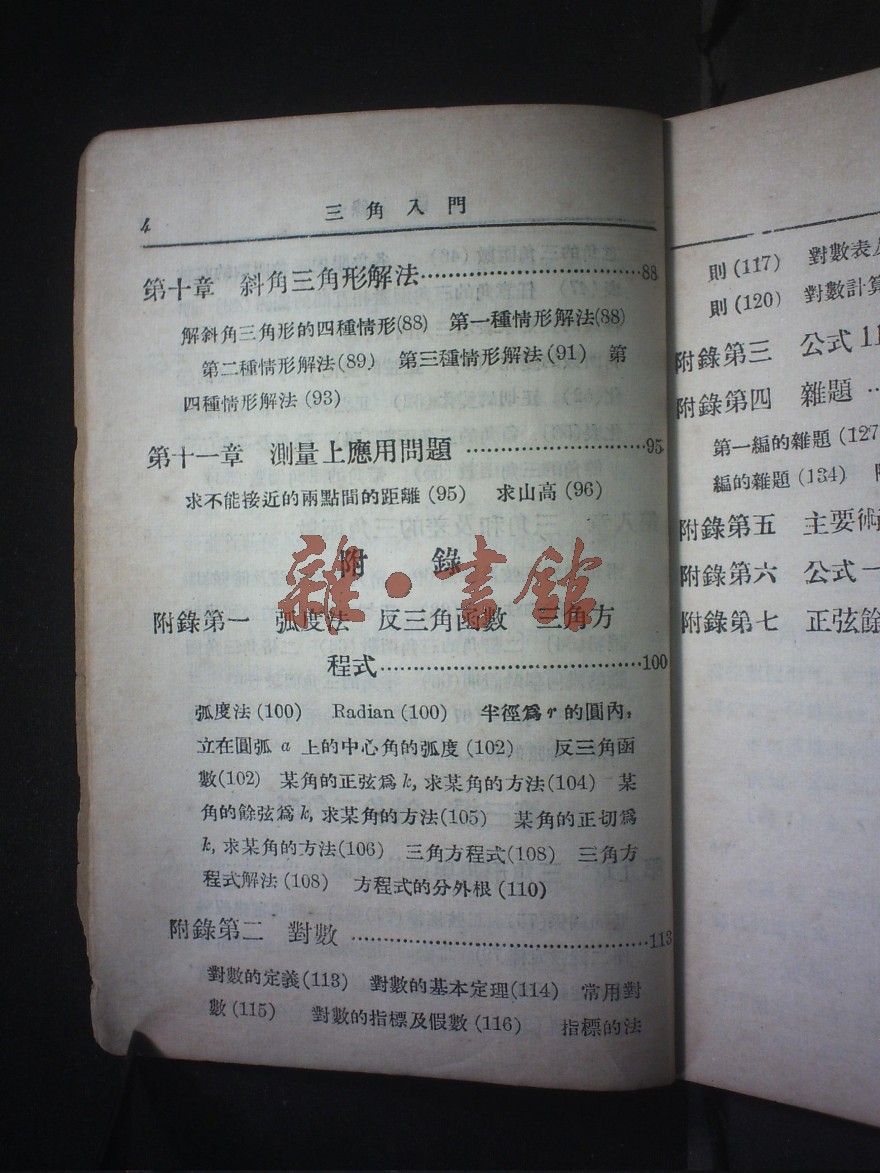 4
三角入門
第十章 斜角三角形解法……………………………88
解斜角三角形的四種情形(88) 第一種情形解法(88)
第二種情形解法(89) 第三種情形解法(91) 第
四種情形解法(93)
第十一章 測量上應用問題……………………95
求不能接近的兩點間的距離(95) 求山高(96)
附 錄
雜·書館
附錄第一 弧度法 反三角函數 三角方
程式……………………………100
弧度法(100) Radian(100) 半徑爲r的圓內,
立在圓弧a上的中心角的弧度(102) 反三角函
數(102) 某角的正弦爲k,求某角的方法(104) 某
角的餘弦爲k,求某角的方法(105) 某角的正切爲
k,求某角的方法(106) 三角方程式(108) 三角方
程式解法(108) 方程式的分外根(110)
附錄第二 對數……………………………………113
對數的定義(113) 對數的基本定理(114) 常用對
數(115) 對數的指標及假數(116) 指標的法
則(117) 對數表
則(120) 對數計算
附錄第三 公式11
附錄第四 雜題…
第一編的雜題(127
編的雜題(134)
附錄第五 主要術
附錄第六 公式一
附錄第七 正弦餘